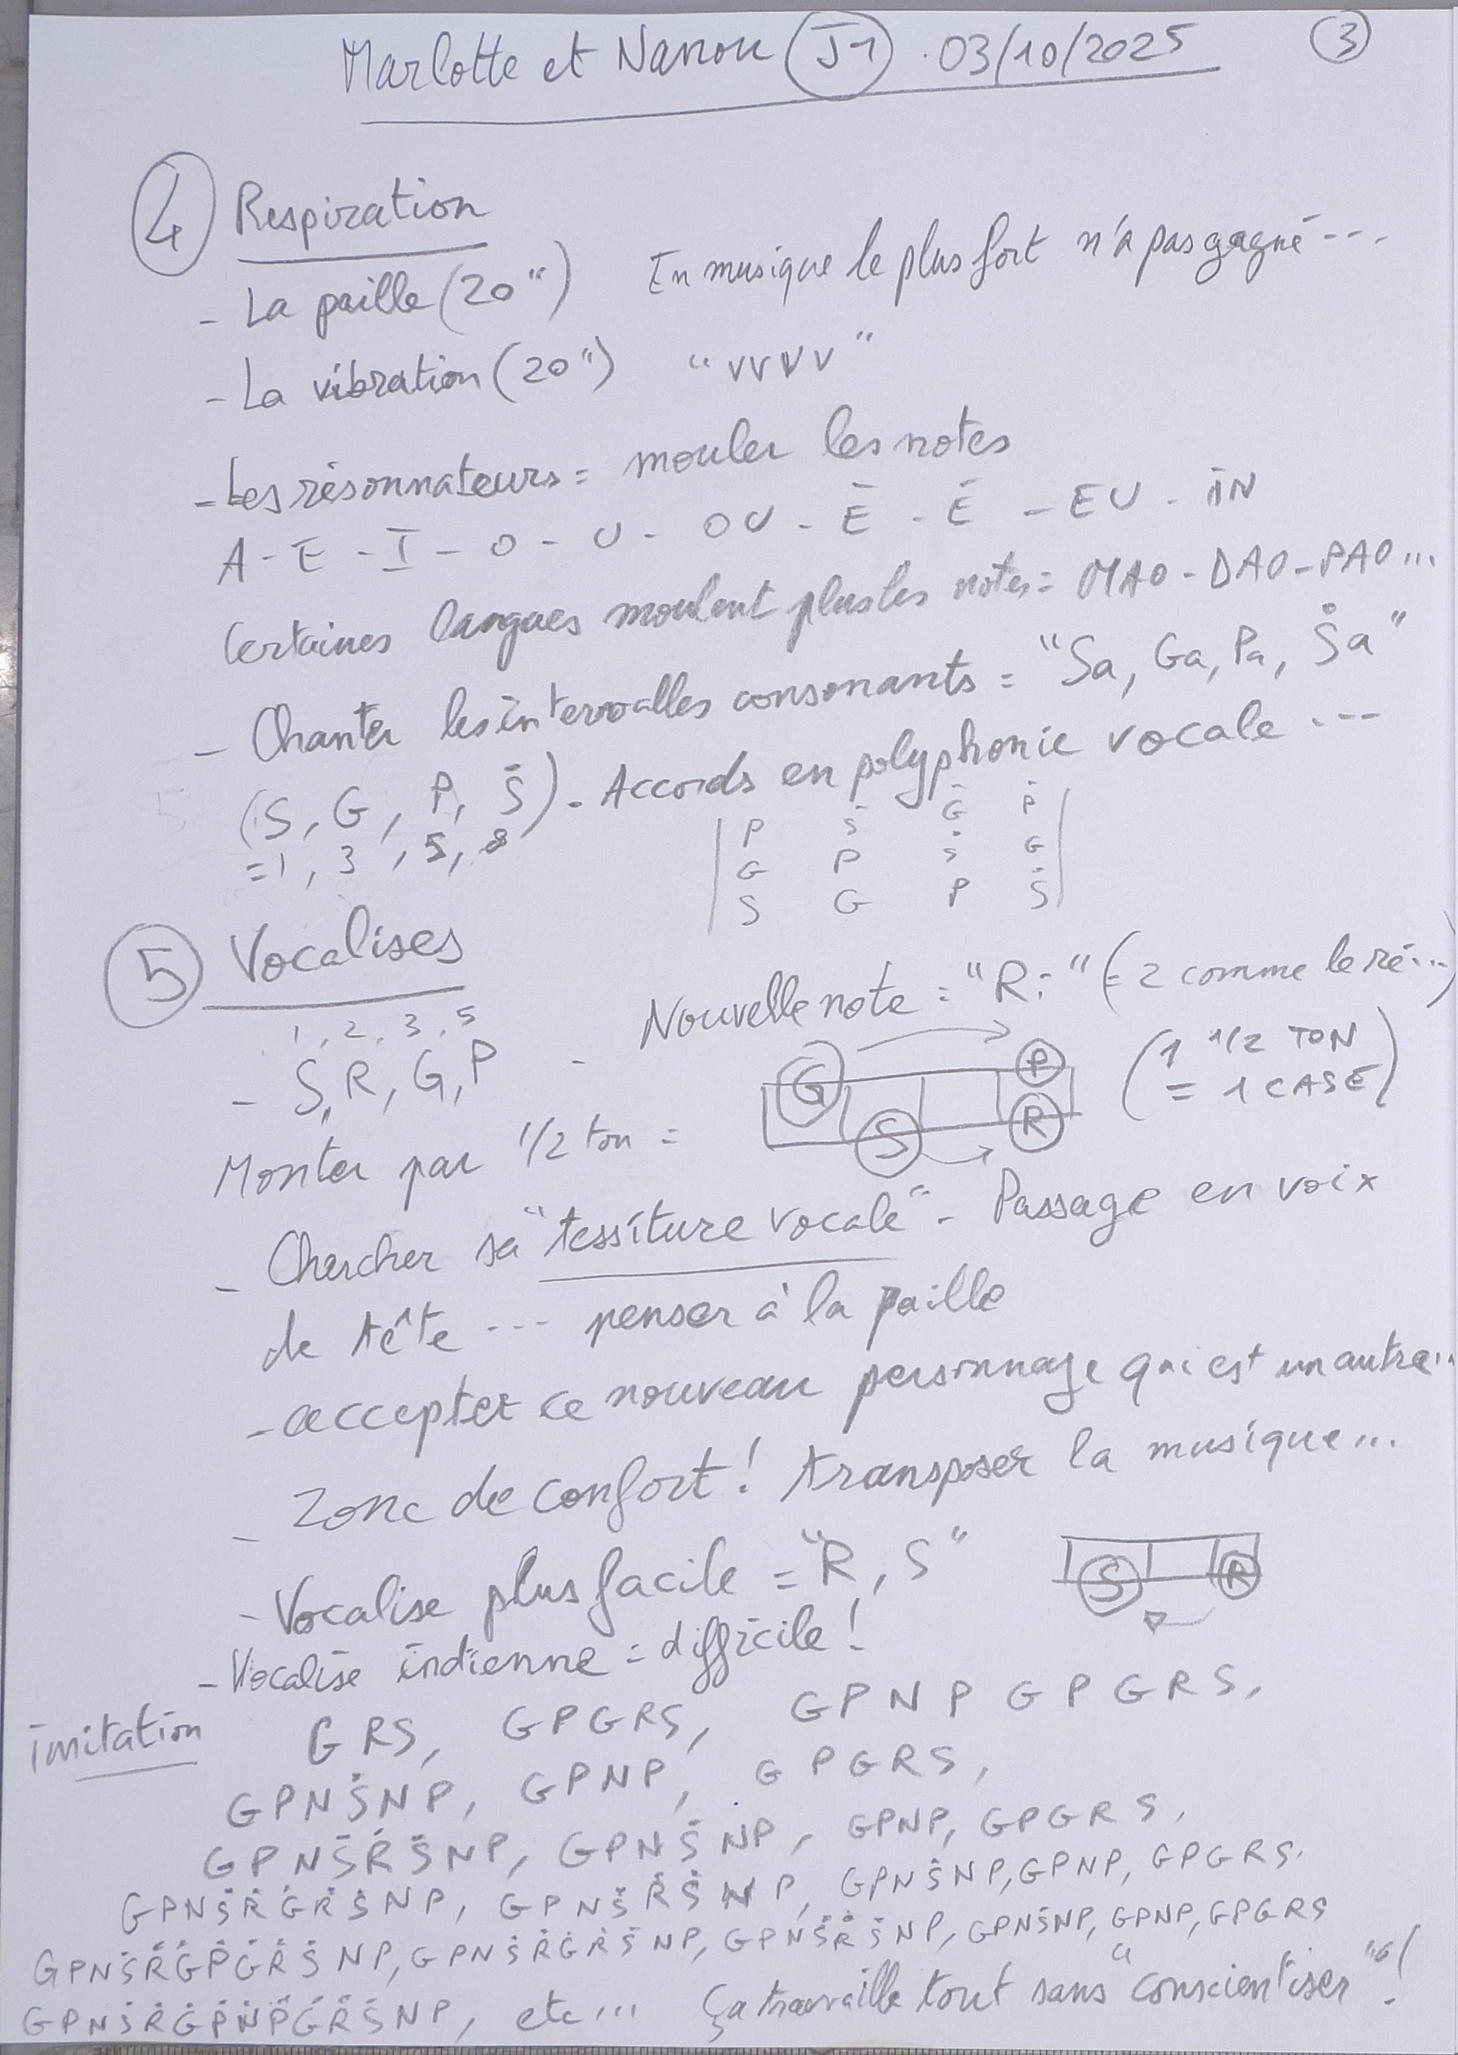 Marlotte et Nanou J1 . 03/10/2025 3
4 Respiration
- La paille (20") En musique le plus fort n'a pas gagné ...
- La vibration (20") "VVVV"
- Les résonnateurs = mouler les notes
A - E - I - O - U - OU - È - É - EU - IN
Certaines langues moulent plus les notes = MAO - DAO - PAO...
- Chanter les intervalles consonants = "Sa, Ga, Pa, Ṡa"
(S, G, P, Ṡ) - Accords en polyphonie vocale ...
= 1, 3, 5, 8
P Ṡ Ġ Ṗ
G P Ṡ Ġ
S G P Ṡ
5 Vocalises
1, 2, 3, 5
- S, R, G, P - Nouvelle note = "Ri" (= 2 comme le ré...)
G P (1 1/2 TON
= 1 CASE)
Monter par 1/2 ton = S R
- Chercher sa "tessiture vocale" - Passage en voix
de tête ... penser à la paille
- accepter ce nouveau personnage qui est un autre...
- Zone de confort ! transposer la musique...
- Vocalise plus facile = "R, S" S R
- Vocalise indienne = difficile !
imitation GRS, GPGRS, GPNPGPGRS,
GPNṠNP, GPNP, GPGRS,
GPNṠṘṠNP, GPNṠNP, GPNP, GPGRS,
GPNṠṘĠṘṠNP, GPNṠṘṠNP, GPNṠNP, GPNP, GPGRS.
GPNṠṘĠṖĠṘṠNP, GPNṠṘĠṘṠNP, GPNṠṘṠNP, GPNṠNP, GPNP, GPGRS
GPNṠṘĠṖṄṖĠṘṠNP, etc... Ça travaille tout sans "conscientiser" !